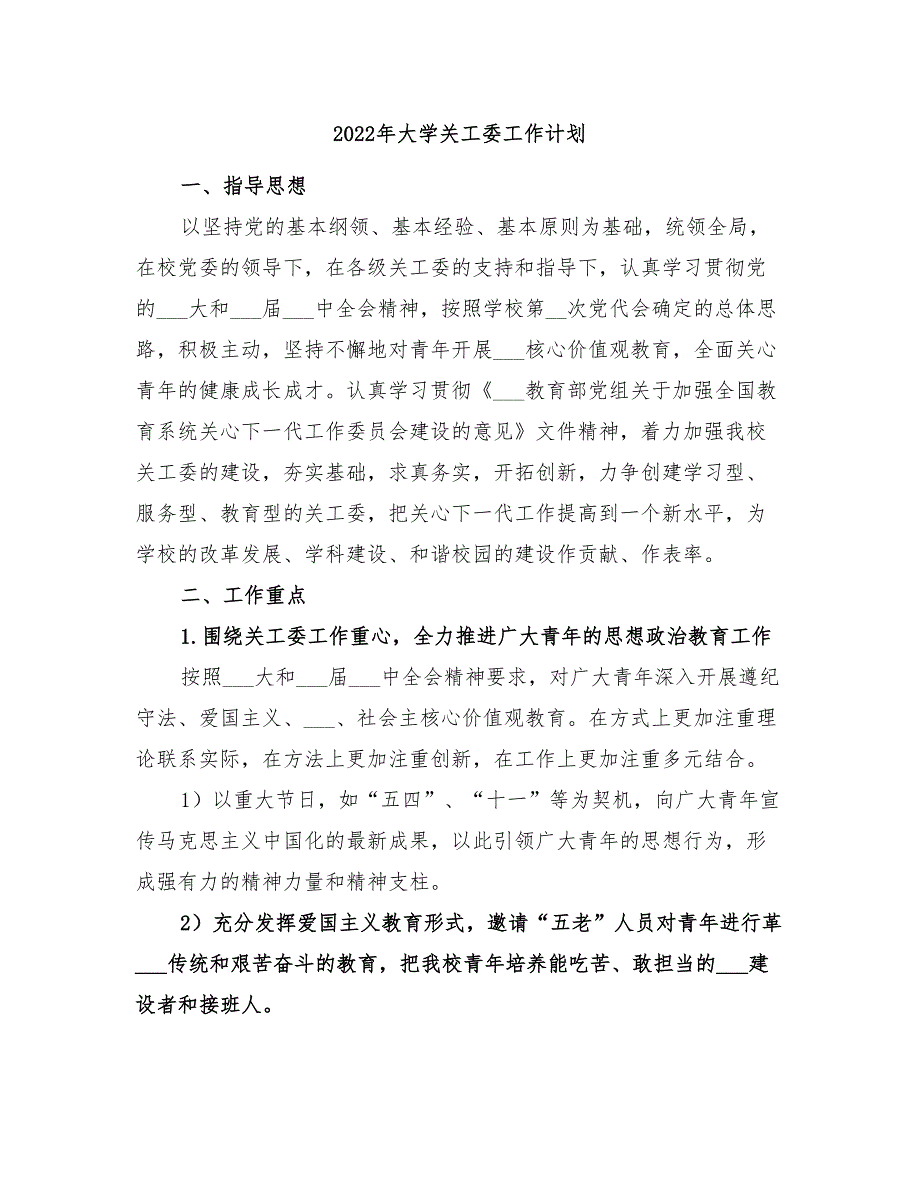 2022年大学关工委工作计划
一、指导思想
以坚持党的基本纲领、基本经验、基本原则为基础，统领全局，
在校党委的领导下，在各级关工委的支持和指导下，认真学习贯彻党
的___大和___届___中全会精神，按照学校第__次党代会确定的总体思
路，积极主动，坚持不懈地对青年开展___核心价值观教育，全面关心
青年的健康成长成才。认真学习贯彻《___教育部党组关于加强全国教
育系统关心下一代工作委员会建设的意见》文件精神，着力加强我校
关工委的建设，夯实基础，求真务实，开拓创新，力争创建学习型、
服务型、教育型的关工委，把关心下一代工作提高到一个新水平，为
学校的改革发展、学科建设、和谐校园的建设作贡献、作表率。
二、工作重点
1.围绕关工委工作重心，全力推进广大青年的思想政治教育工作
按照___大和___届___中全会精神要求，对广大青年深入开展遵纪
守法、爱国主义、___、社会主核心价值观教育。在方式上更加注重理
论联系实际，在方法上更加注重创新，在工作上更加注重多元结合。
1）以重大节日，如“五四”、“十一”等为契机，向广大青年宣
传马克思主义中国化的最新成果，以此引领广大青年的思想行为，形
成强有力的精神力量和精神支柱。
2）充分发挥爱国主义教育形式，邀请“五老”人员对青年进行革
___传统和艰苦奋斗的教育，把我校青年培养能吃苦、敢担当的___建
设者和接班人。